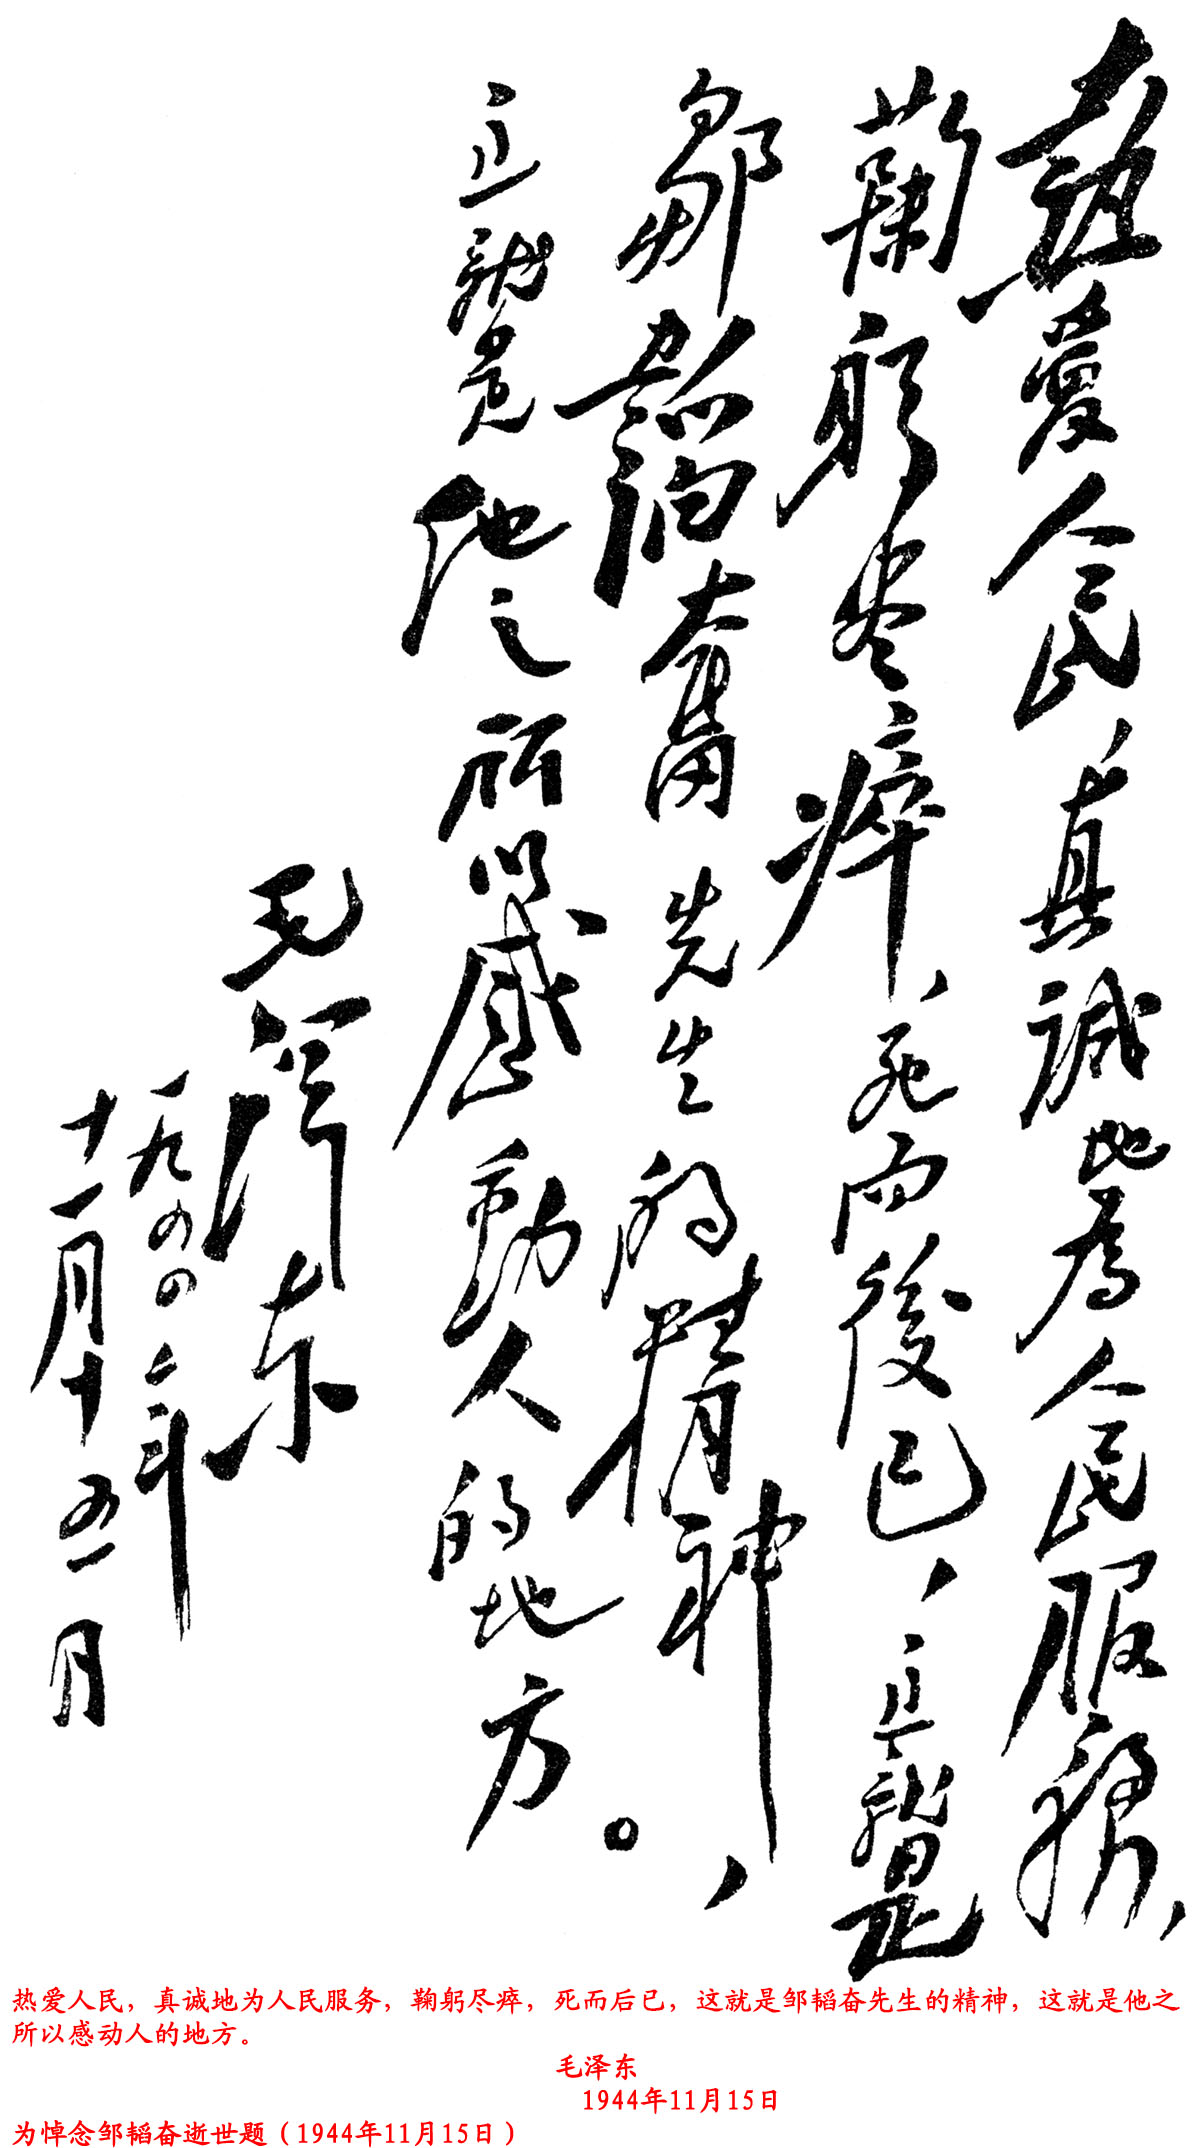 热爱人民、真誠地為人民服務，
鞠躬尽瘁，死而後已，这就是
鄒韜奮先生的精神，
这就是他之所以感動人的地方。
毛泽东
一九四四年
十一月十五日
热爱人民，真诚地为人民服务，鞠躬尽瘁，死而后已，这就是邹韬奋先生的精神，这就是他之
所以感动人的地方。
毛泽东
1944年11月15日
为悼念邹韬奋逝世题（1944年11月15日）